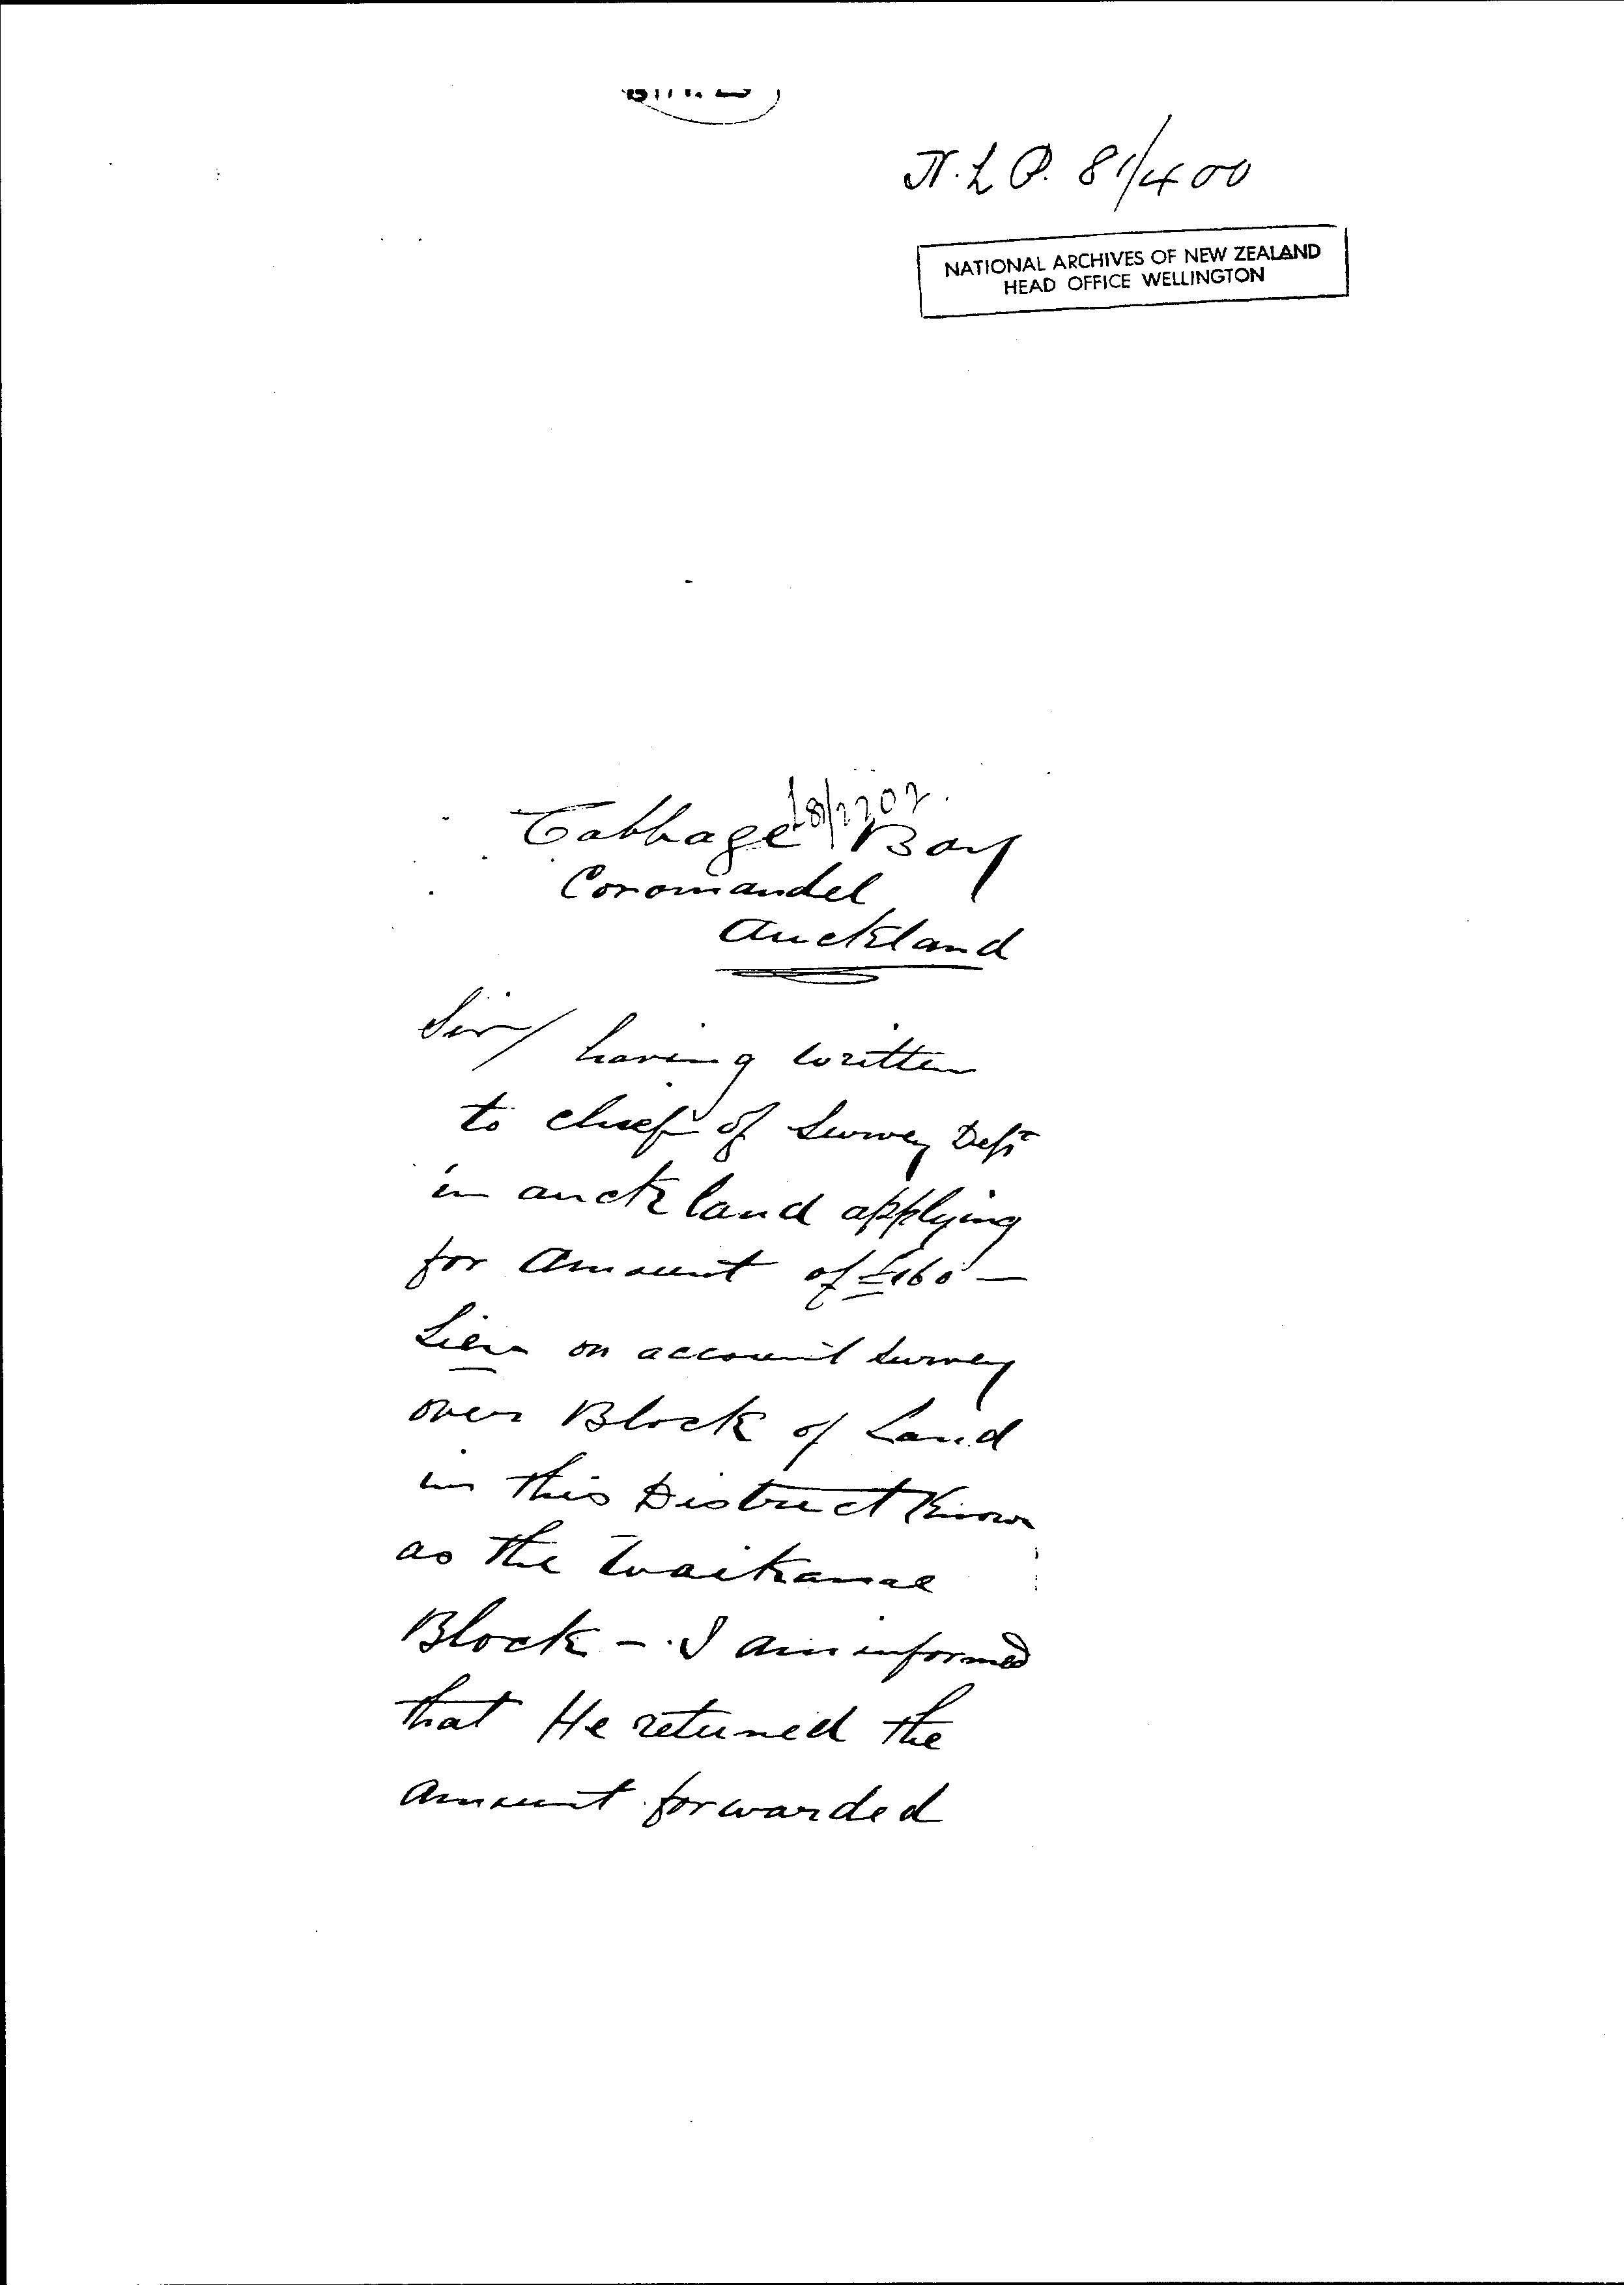 N.L.P. 81/400
NATIONAL ARCHIVES OF NEW ZEALAND
HEAD OFFICE WELLINGTON
Cabbage Bay
Coromandel
Auckland
Sir/ having written
to chief of Survey Dept
in auckland applying
for amount of £160 —
Lien on account Survey
over Block of Land
in this District Known
as the Waikanae
Block - I am informed
that He returned the
amount forwarded